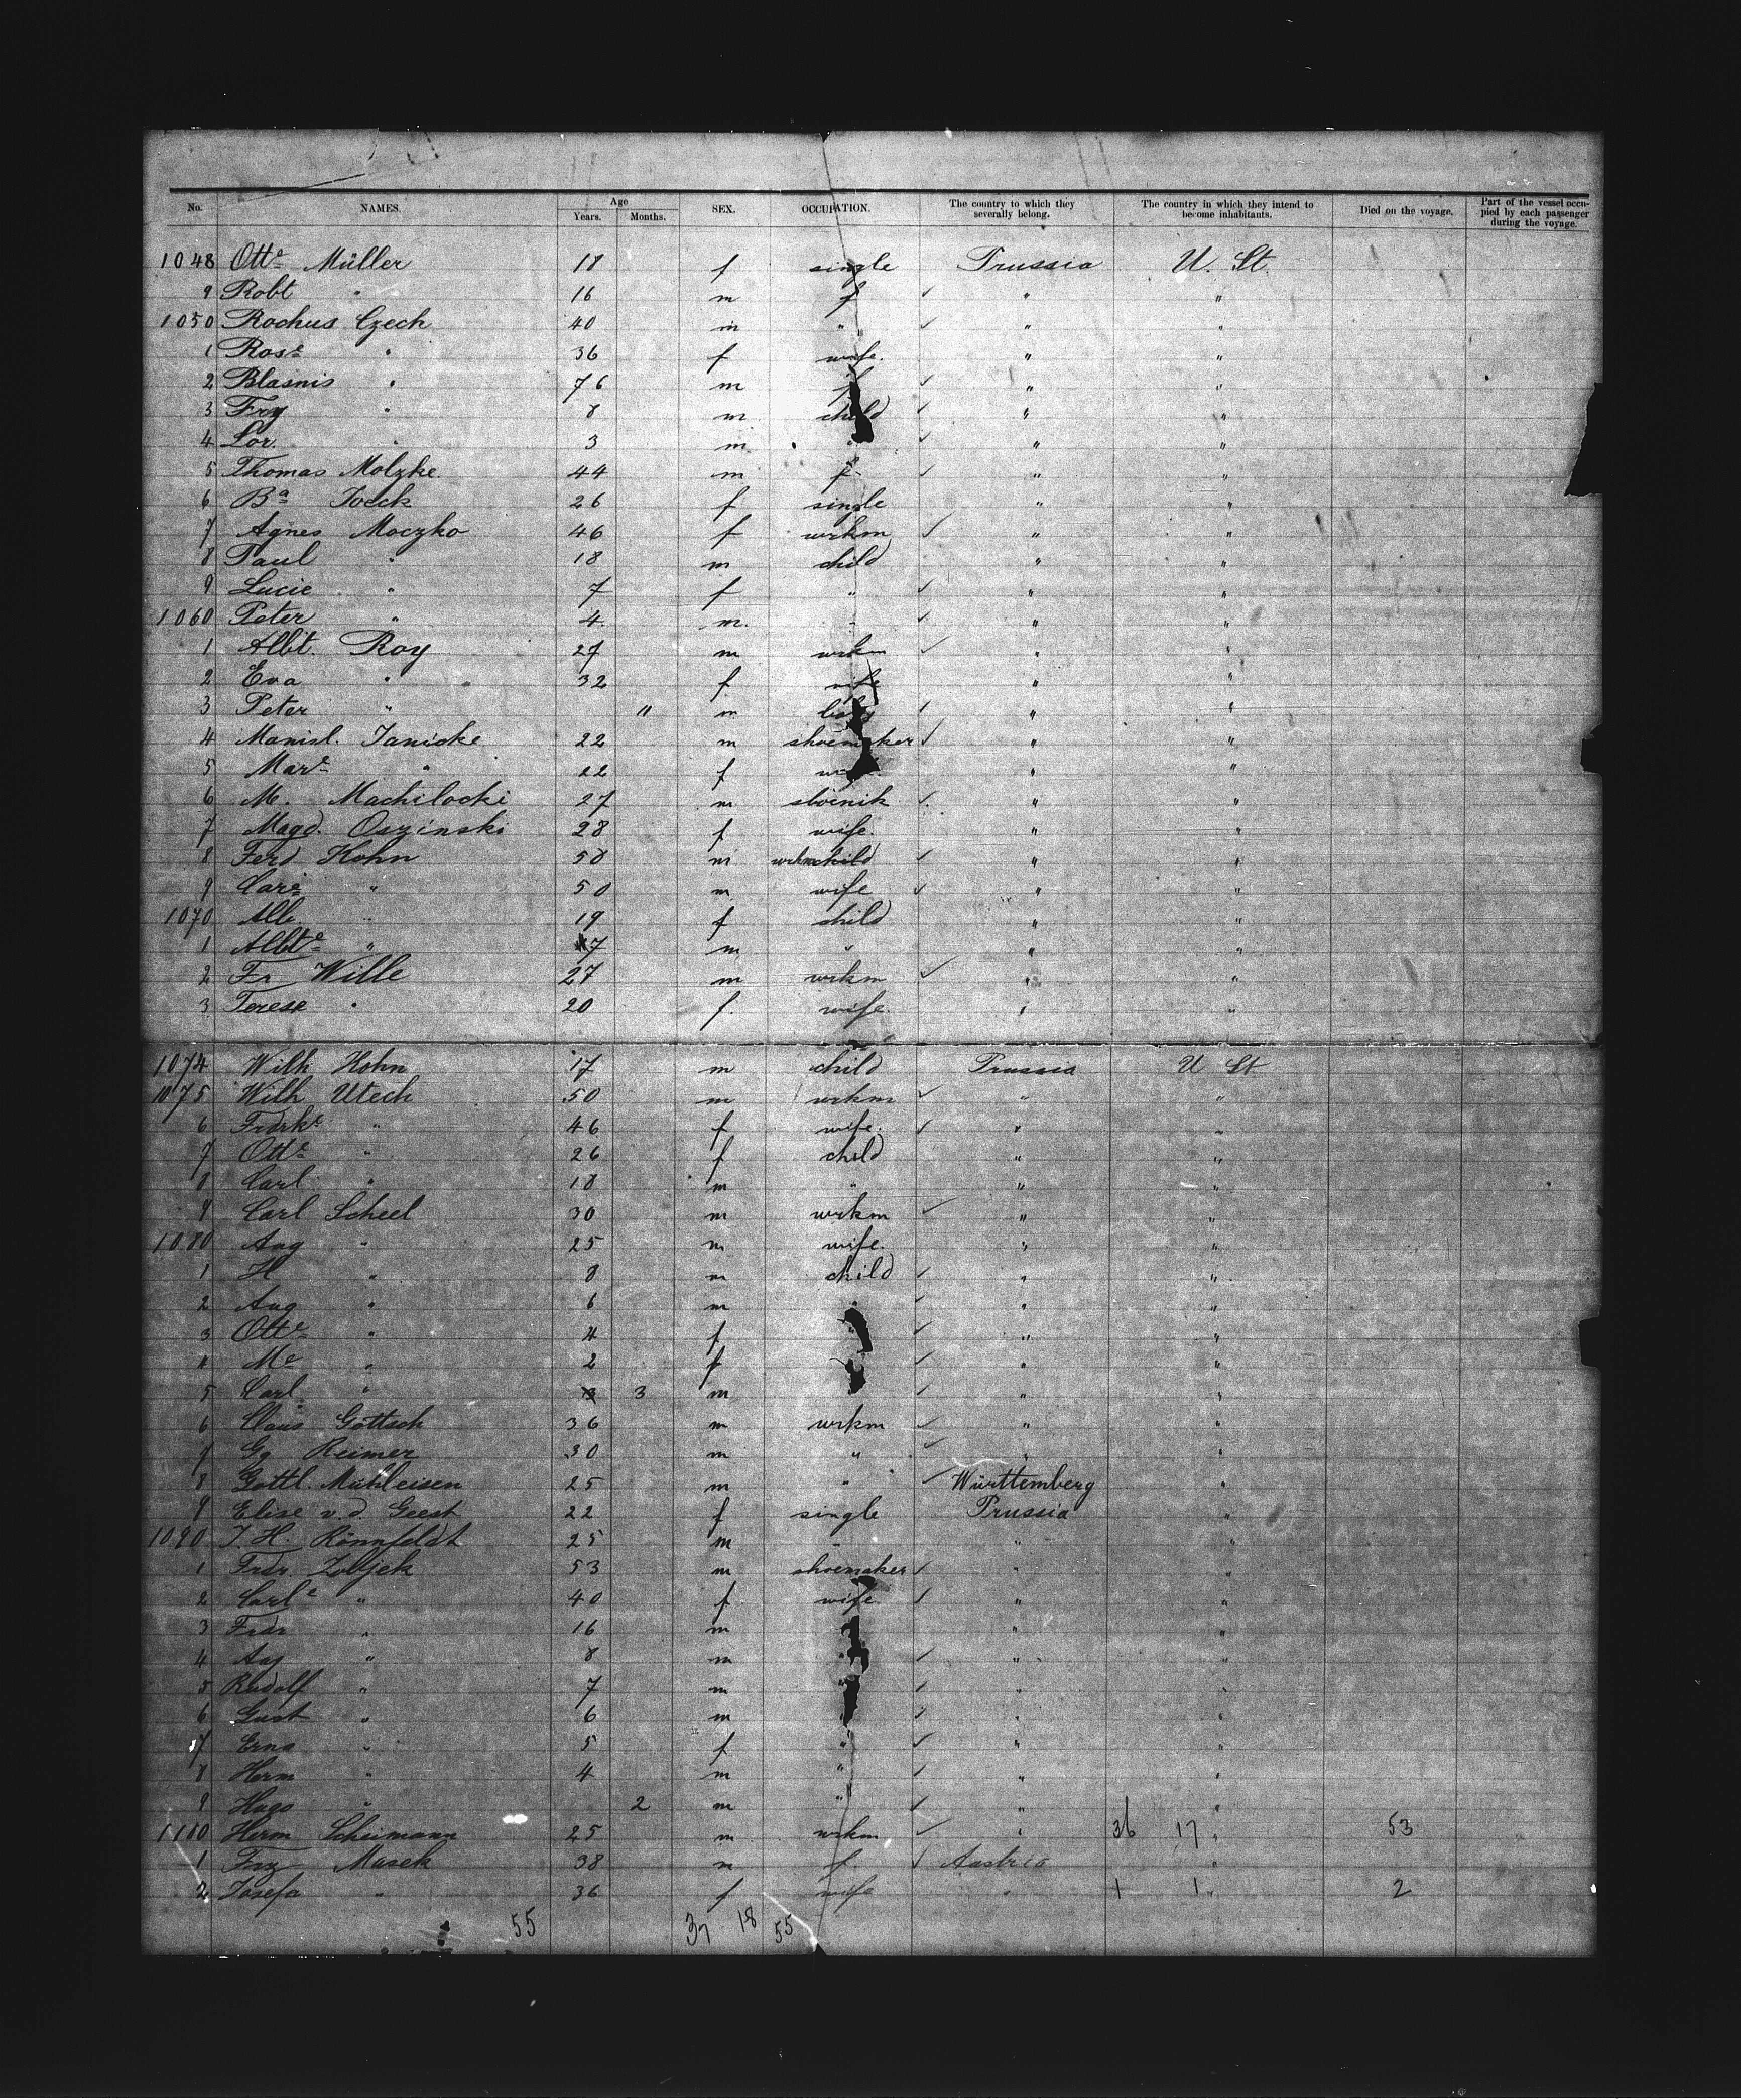 No. NAMES. Age Years. Months. SEX. OCCUPATION. The country to which they severally belong. The country in which they intend to become inhabitants. Died on the voyage. Part of the vessel occupied by each passenger during the voyage.
1048 Ott.e Müller 18 f single Prussia U. St.
9 Robt " 16 m f " "
1050 Rochus Czech 40 m " " "
1 Ros.e " 36 f wife. " "
2 Blasnis " 76 m f " "
3 Frz " 8 m child " "
4 Lor. " 3 m " " "
5 Thomas Molzke. 44 m f " "
6 B.a Joeck 26 f single " "
7 Agnes Moczko 46 f wrkm " "
8 Paul " 18 m child " "
9 Lucie " 7 f " " "
1060 Peter " 4 m. " " "
1 Albt. Roy 27 m wrkm " "
2 Eva " 32 f wife " "
3 Peter " 11 m baby " "
4 Manisl. Janicke 22 m shoemaker " "
5 Mar.e " 22 f " "
6 M. Machilocki 27 m " "
7 Magd. Oszinski 28 f wife. " "
8 Ferd Kohn 58 m wrkm child " "
9 Car.e " 50 m wife " "
1070 Alb. " 19 f child " "
1 Albt.e " 7 m " " "
2 Fr Wille 27 m wrkm " "
3 Terese " 20 f. wife. " "
1074 Wilh Kohn 17 m child Prussia U St
1075 Wilh Utech 50 m wrkm " "
6 Frdrk.e " 46 f wife. " "
7 Ott.e " 26 f child " "
8 Carl " 18 m " " "
9 Carl Scheel 30 m wrkm " "
1080 Aug " 25 m wife. " "
1 H " 8 m child " "
2 Aug " 6 m " " "
3 Ott.e " 4 f " " "
4 M.e " 2 f " "
5 Carl " 3 m " "
6 Claus Göttsch 36 m wrkm " "
7 Gg Reimer 30 m " " "
8 Gottl. Mühleisen 25 m " Württemberg "
9 Elise v. d. Geest 22 f single Prussia "
1090 J. H. Rönnfeldt 25 m " " "
1 Frdr. Zobjek 53 m shoemaker " "
2 Carl.e " 40 f wife " "
3 Frdr " 16 m " "
4 Aug " 8 m " " "
5 Rudolf " 7 m " " "
6 Gust " 6 m " "
7 Erna " 5 f " " "
8 Herm " 4 m " " "
9 Hugo " 2 m " " "
1100 Herm Scheimann 25 m wrkm " 36 17 " 53
1 Frz Musek 38 m f. Austria "
2 Josefa " 36 f wife " 1 1 " 2
55 37 18 55